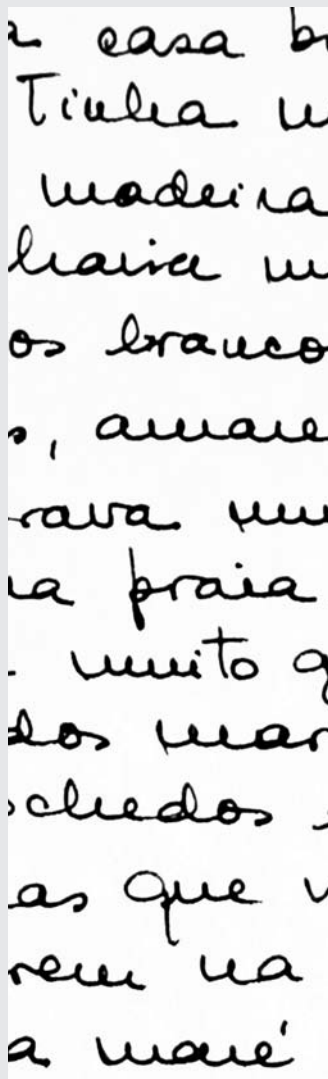 a casa b
Tinha u
madeira
havia u
os branco
s, amare
rava nu
na praia
muito g
dos mar
ochedos
as que v
rem na
a maré